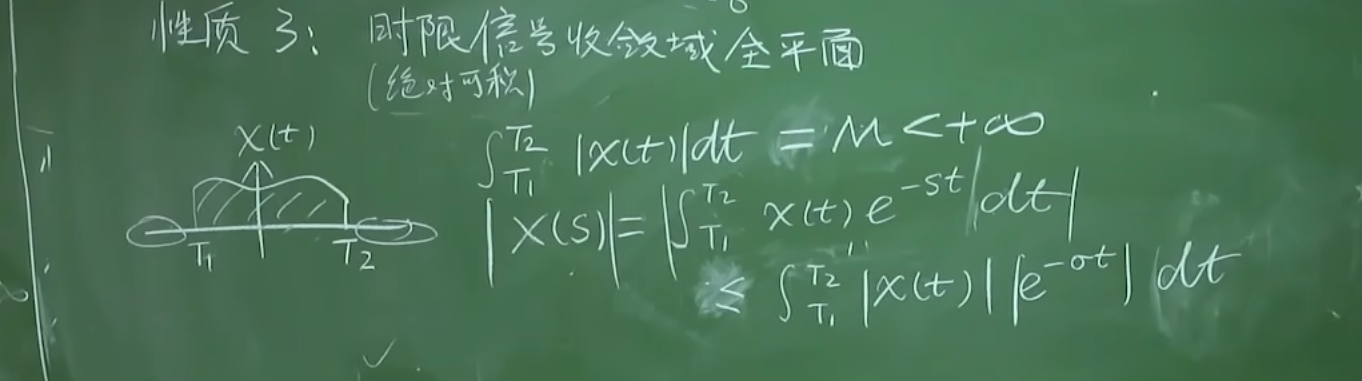 性质 3: 时限信号收敛域全平面
(绝对可积)
X(t)
T₁ T₂
∫_{T₁}^{T₂} |x(t)|dt = M < +∞
|X(S)| = |∫_{T₁}^{T₂} x(t) e^{-st} |dt|
≤ ∫_{T₁}^{T₂} |x(t)| |e^{-σt}| dt